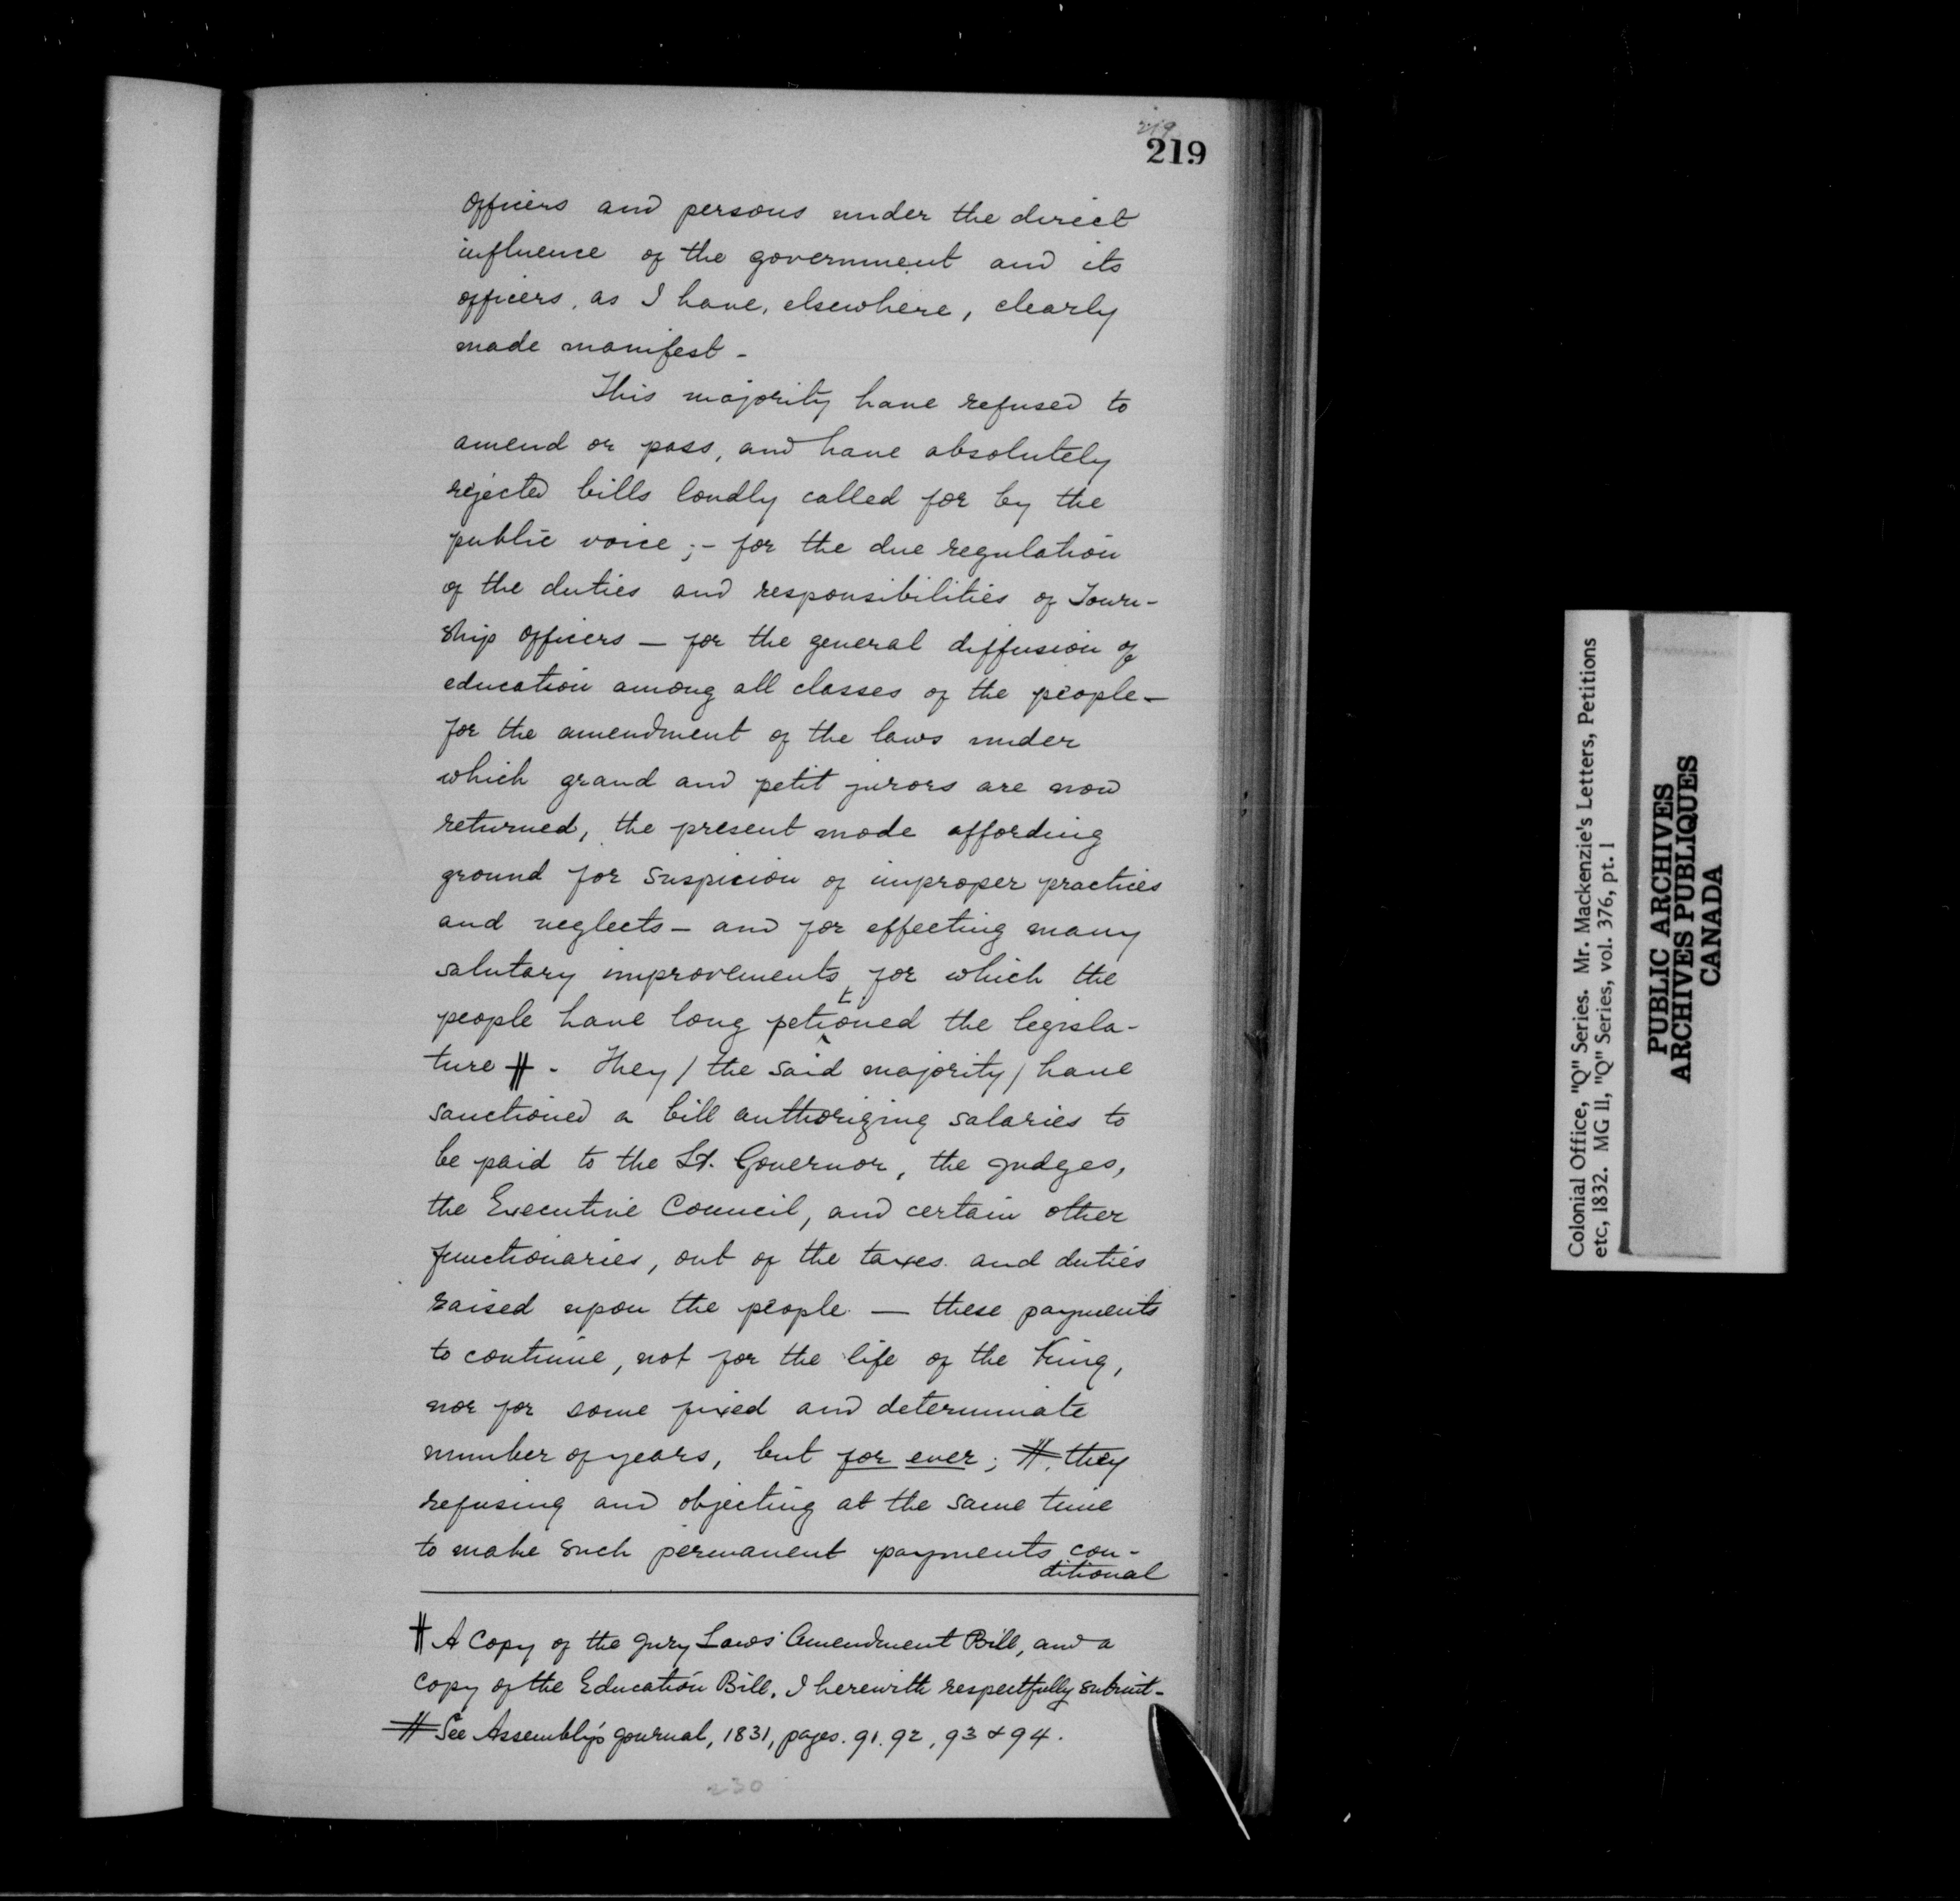 219
219
officers and persons under the direct
influence of the government and its
officers, as I have, elsewhere, clearly
made manifest -
This majority have refused to
amend or pass, and have absolutely
rejected bills loudly called for by the
public voice; - for the due regulation
of the duties and responsibilities of Town-
ship officers — for the general diffusion of
education among all classes of the people —
for the amendment of the laws under
which grand and petit jurors are now
returned, the present mode affording
ground for suspicion of improper practices
and neglects — and for effecting many
salutary improvements, for which the
people have long petitioned the legisla-
ture ‡ - They / the said majority / have
sanctioned a bill authorizing salaries to
be paid to the Lt. Governor, the judges,
the Executive Council, and certain other
functionaries, out of the taxes and duties
raised upon the people — these payments
to continue, not for the life of the King,
nor for some fixed and determinate
number of years, but for ever; # they
refusing and objecting at the same time
to make such permanent payments con-
ditional
‡ A Copy of the Jury Laws' Amendment Bill, and a
Copy of the Education Bill, I herewith respectfully submit -
# See Assembly's journal, 1831, pages. 91. 92, 93 & 94.
230
Colonial Office, "Q" Series. Mr. Mackenzie's Letters, Petitions
etc, 1832. MG 11, "Q" Series, vol. 376, pt. 1
PUBLIC ARCHIVES
ARCHIVES PUBLIQUES
CANADA